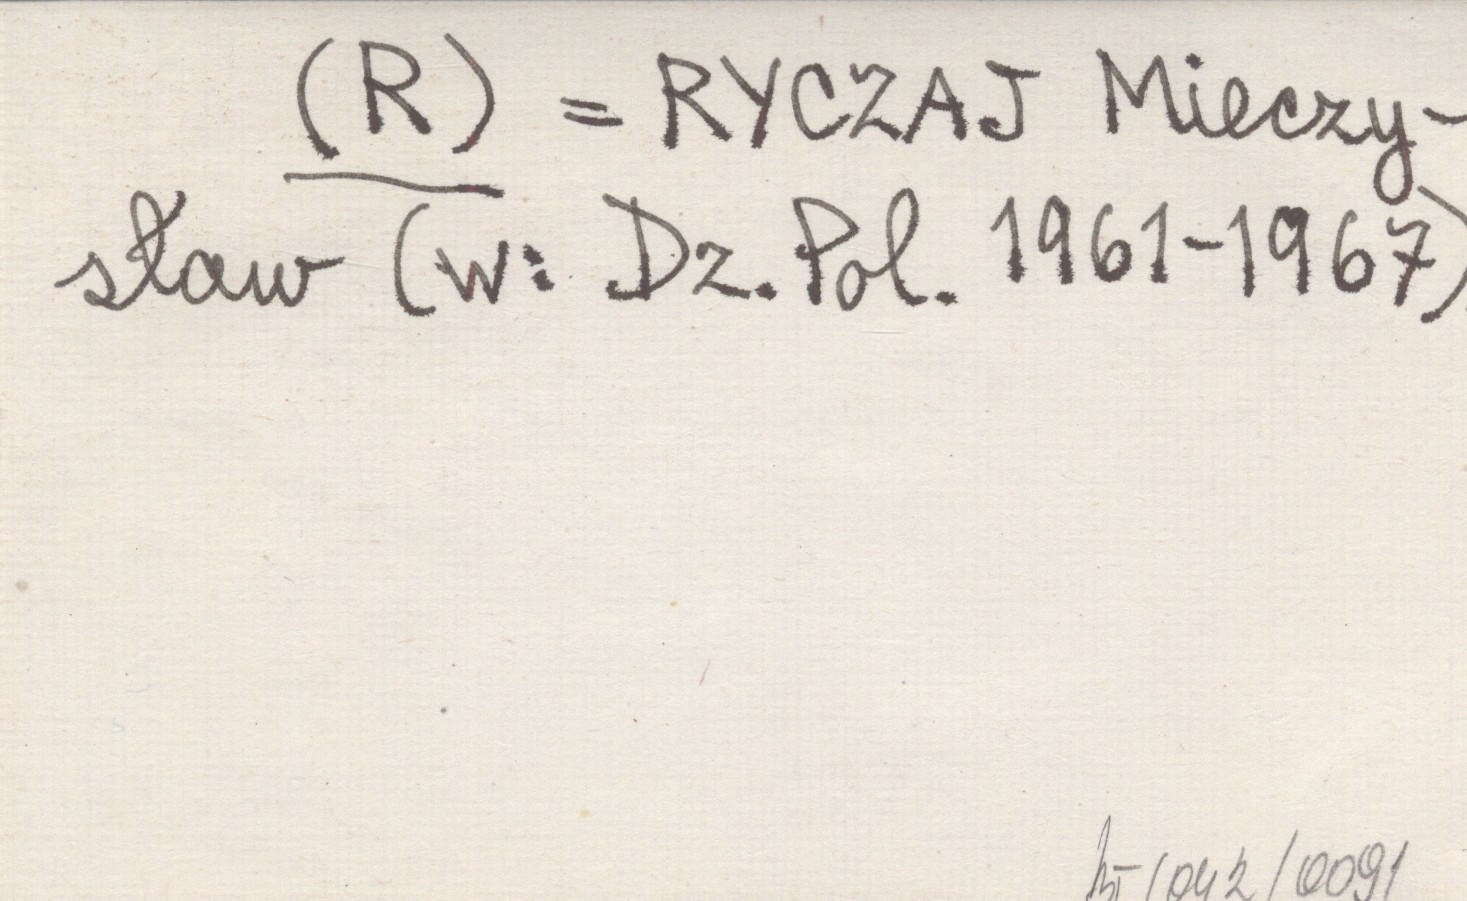 (R) = RYCZAJ Mieczy-
sław (w: Dz. Pol. 1961-1967)
/042/0091